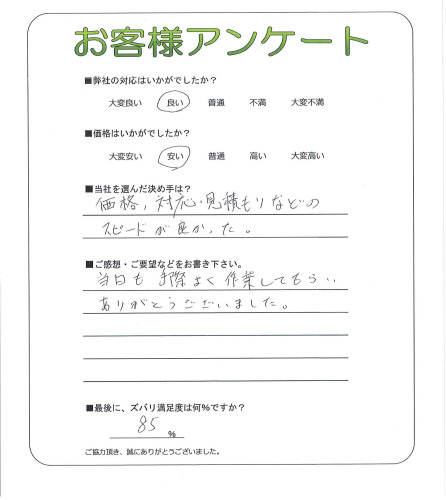 お客様アンケート
■弊社の対応はいかがでしたか？
大変良い 良い 普通 不満 大変不満
■価格はいかがでしたか？
大変安い 安い 普通 高い 大変高い
■当社を選んだ決め手は？
価格，対応・見積もりなどの
スピードが良かった。
■ご感想・ご要望などをお書き下さい。
当日も手際よく作業してもらい
ありがとうございました。
■最後に、ズバリ満足度は何%ですか？
85 %
ご協力頂き、誠にありがとうございました。